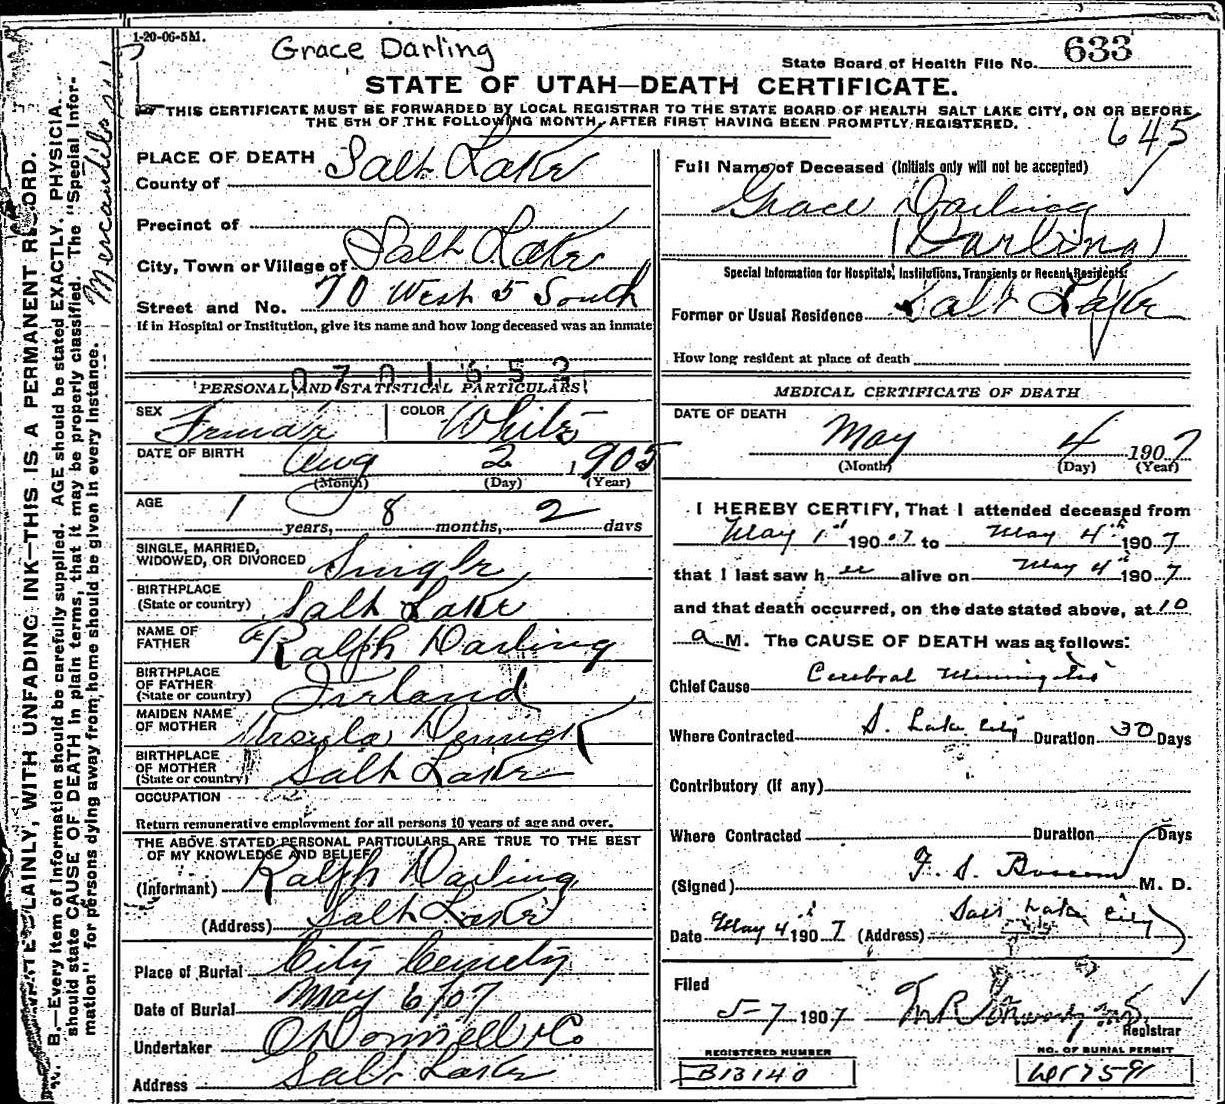 1-20-06-5M.
Grace Darling
State Board of Health File No. 633
STATE OF UTAH—DEATH CERTIFICATE.
THIS CERTIFICATE MUST BE FORWARDED BY LOCAL REGISTRAR TO THE STATE BOARD OF HEALTH SALT LAKE CITY, ON OR BEFORE
THE 5TH OF THE FOLLOWING MONTH, AFTER FIRST HAVING BEEN PROMPTLY REGISTERED.
645
PLACE OF DEATH
County of Salt Lake
Precinct of
City, Town or Village of Salt Lake
Street and No. 70 West 5 South
If in Hospital or Institution, give its name and how long deceased was an inmate
0701653
PERSONAL AND STATISTICAL PARTICULARS
SEX Female COLOR White
DATE OF BIRTH Aug 2, 1905
(Month) (Day) (Year)
AGE 1 years, 8 months, 2 days
SINGLE, MARRIED,
WIDOWED, OR DIVORCED Single
BIRTHPLACE
(State or country) Salt Lake
NAME OF
FATHER Ralph Darling
BIRTHPLACE
OF FATHER
(State or country) Irland
MAIDEN NAME
OF MOTHER Ursula
BIRTHPLACE
OF MOTHER
(State or country) Salt Lake
OCCUPATION
Return remunerative employment for all persons 10 years of age and over.
THE ABOVE STATED PERSONAL PARTICULARS ARE TRUE TO THE BEST
OF MY KNOWLEDGE AND BELIEF
(Informant) Ralph Darling
(Address) Salt Lake
Place of Burial City Cemety
Date of Burial May 6/07
Undertaker O'Donnell & Co
Address Salt Lake
Full Name of Deceased (Initials only will not be accepted)
Grace Darling
(Darling)
Special Information for Hospitals, Institutions, Transients or Recent Residents:
Former or Usual Residence Salt Lake
How long resident at place of death
MEDICAL CERTIFICATE OF DEATH
DATE OF DEATH
May 4 1907
(Month) (Day) (Year)
I HEREBY CERTIFY, That I attended deceased from
May 1st 190.07 to May 4th 1907
that I last saw her alive on May 4th 1907
and that death occurred, on the date stated above, at 10
a M. The CAUSE OF DEATH was as follows:
Chief Cause Cerebral Miningitis
Where Contracted S. Lake City Duration 30 Days
Contributory (If any)
Where Contracted Duration Days
(Signed) F. S. M. D.
Date May 4th 1907 (Address) Salt Lake City
Filed
5-7 1907 Registrar
REGISTERED NUMBER
B13140
NO. OF BURIAL PERMIT
N. B.—Every item of Information should be carefully supplied. AGE should be stated EXACTLY. PHYSICIA
should state CAUSE OF DEATH in plain terms, that it may be properly classified. The "Special Infor-
mation" for persons dying away from home should be given in every instance.
PLAINLY, WITH UNFADING INK—THIS IS A PERMANENT RECORD.